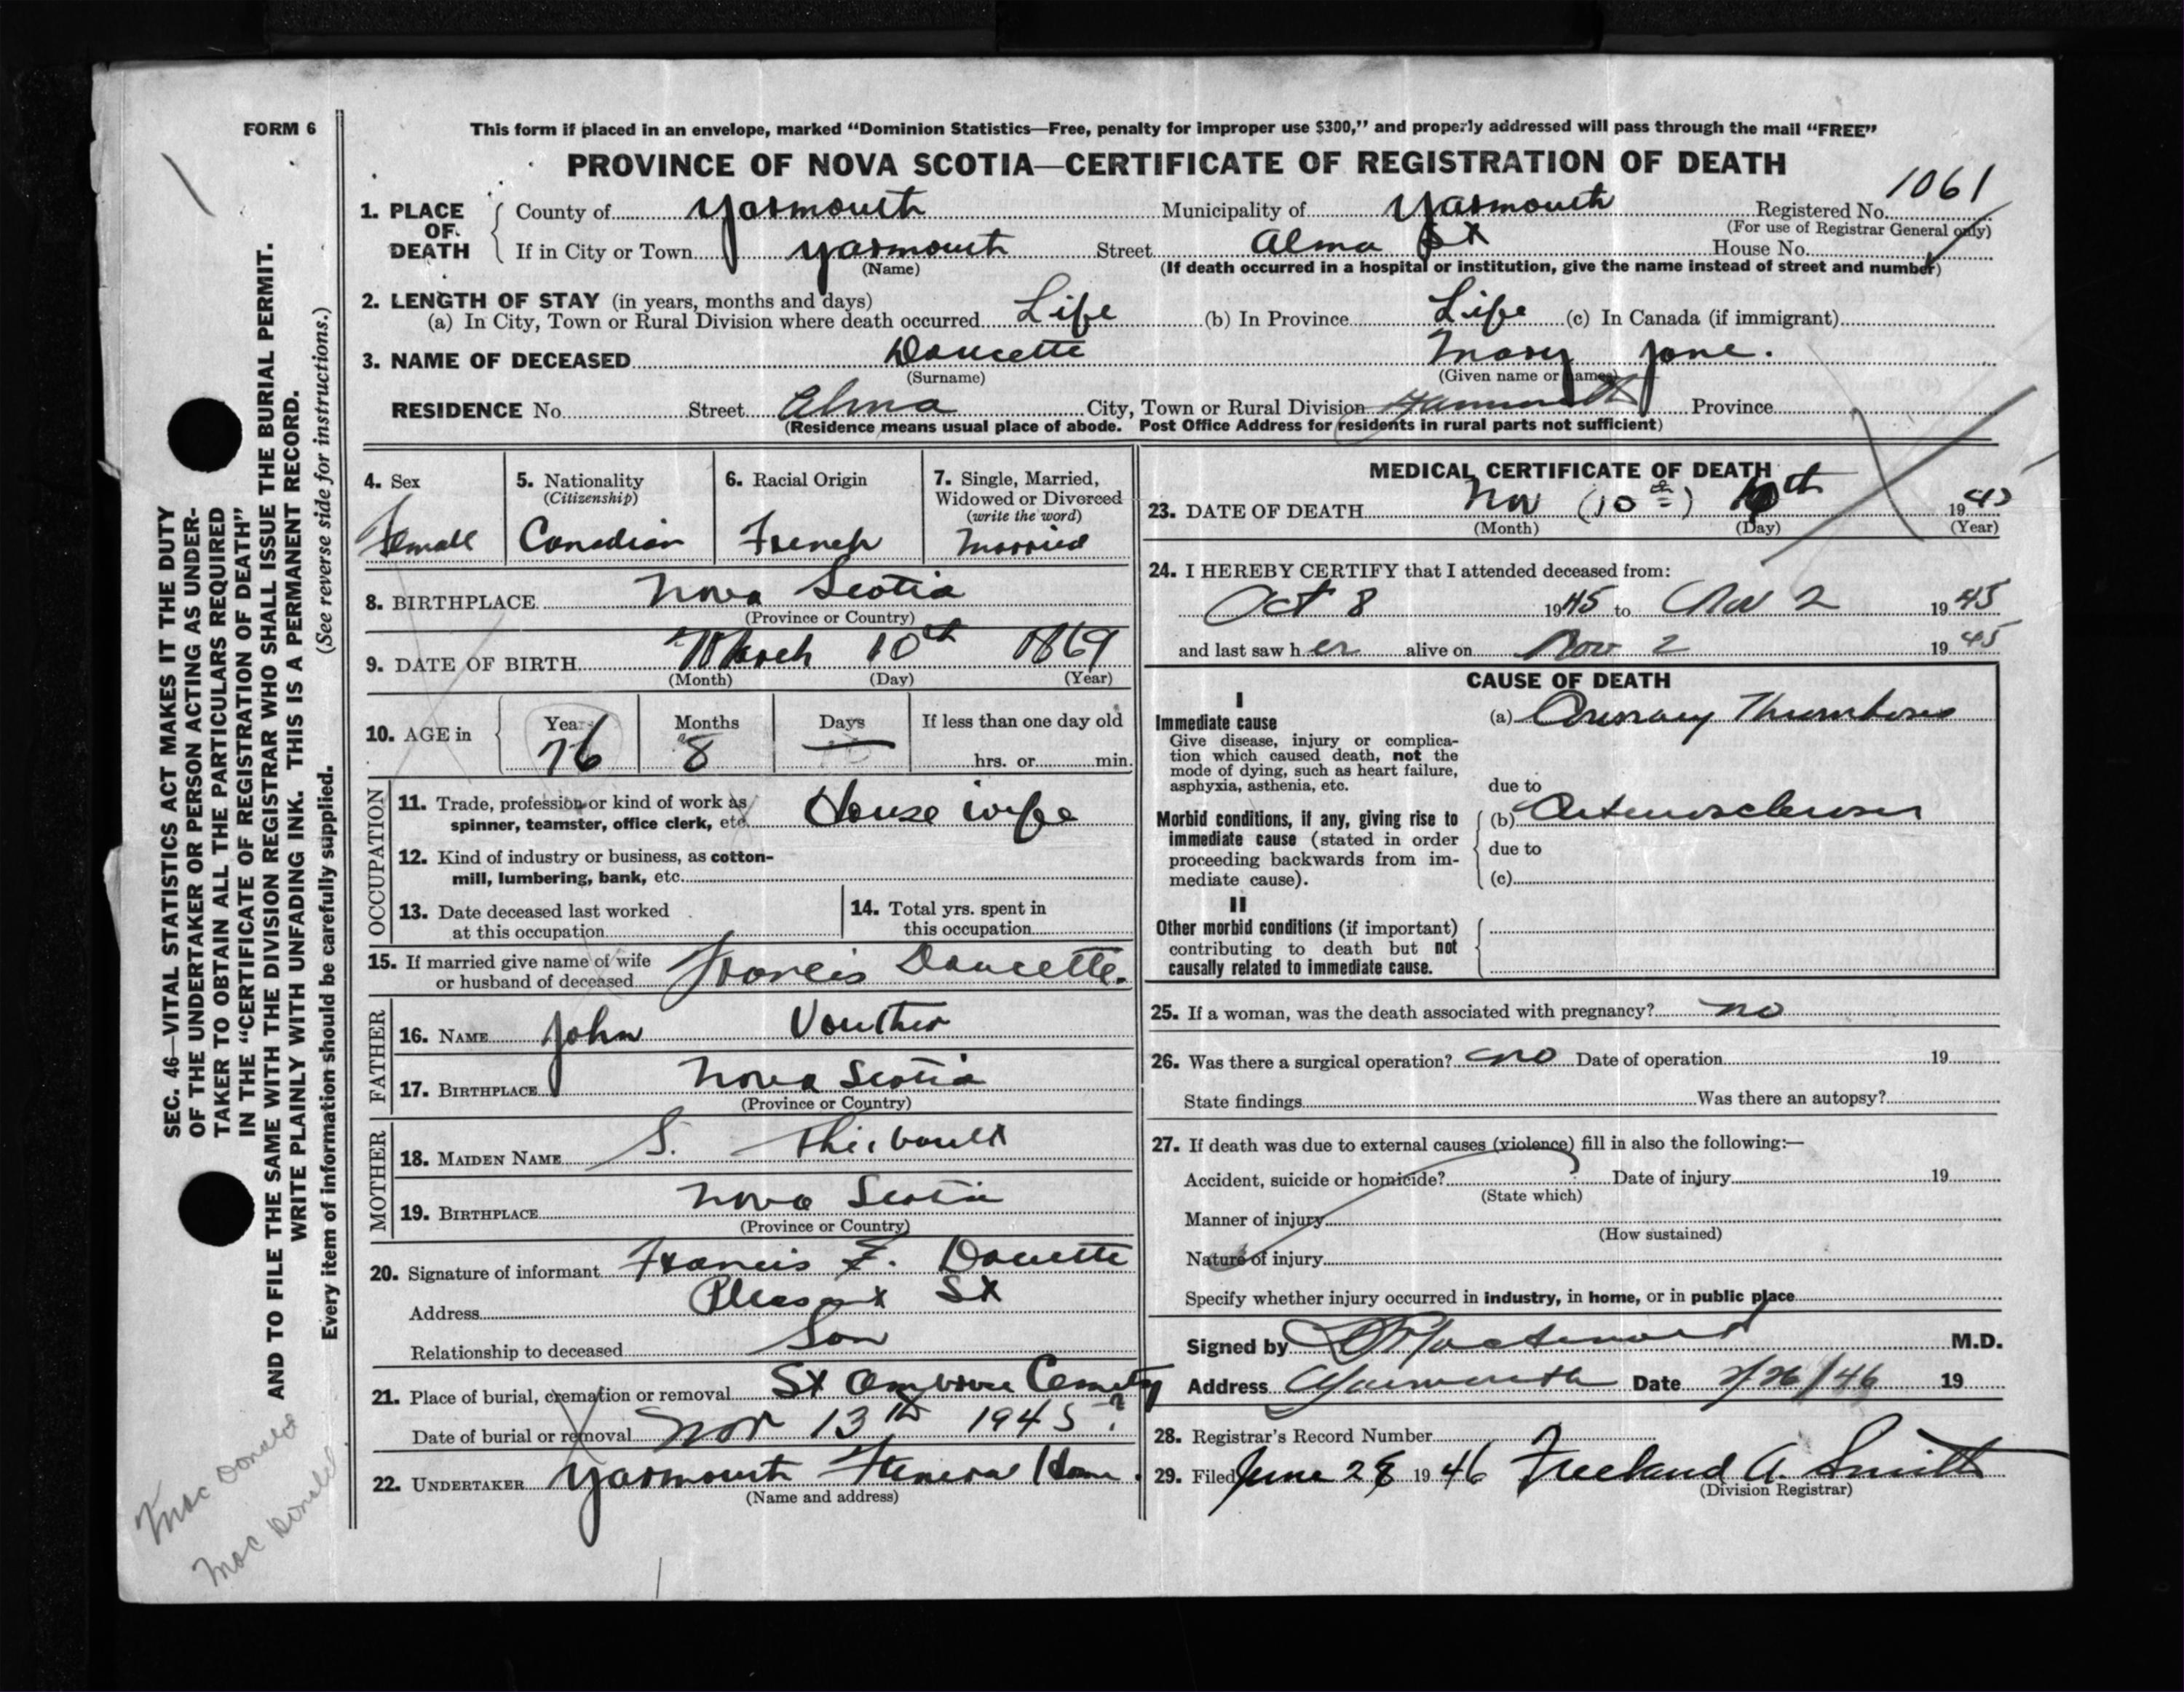 FORM 6
This form if placed in an envelope, marked "Dominion Statistics—Free, penalty for improper use $300," and properly addressed will pass through the mail "FREE"
PROVINCE OF NOVA SCOTIA—CERTIFICATE OF REGISTRATION OF DEATH
1061
1. PLACE OF DEATH County of Yarmouth Municipality of Yarmouth Registered No.
(For use of Registrar General only)
If in City or Town Yarmouth Street Alma St House No.
(Name) (If death occurred in a hospital or institution, give the name instead of street and number)
2. LENGTH OF STAY (in years, months and days)
(a) In City, Town or Rural Division where death occurred Life (b) In Province Life (c) In Canada (if immigrant)
3. NAME OF DECEASED Doucette Mary Jane.
(Surname) (Given name or names)
RESIDENCE No. Street Alma City, Town or Rural Division Yarmouth Province
(Residence means usual place of abode. Post Office Address for residents in rural parts not sufficient)
4. Sex 5. Nationality (Citizenship) 6. Racial Origin 7. Single, Married, Widowed or Divorced (write the word)
Female Canadian French Married
8. BIRTHPLACE Nova Scotia
(Province or Country)
9. DATE OF BIRTH March 10th 1869
(Month) (Day) (Year)
10. AGE in Years Months Days If less than one day old
76 8 — hrs. or min.
OCCUPATION
11. Trade, profession or kind of work as
spinner, teamster, office clerk, etc. House wife
12. Kind of industry or business, as cotton-
mill, lumbering, bank, etc.
13. Date deceased last worked
at this occupation
14. Total yrs. spent in
this occupation
15. If married give name of wife
or husband of deceased Francis Doucette.
FATHER
16. NAME John
17. BIRTHPLACE Nova Scotia
(Province or Country)
MOTHER
18. MAIDEN NAME S. Thibault
19. BIRTHPLACE Nova Scotia
(Province or Country)
20. Signature of informant Francis F. Doucette
Address Pleasant St
Relationship to deceased Son
21. Place of burial, cremation or removal St Ambrose Cemetry
Date of burial or removal Nov 13th 1945 ?
22. UNDERTAKER Yarmouth Funeral Home.
(Name and address)
MEDICAL CERTIFICATE OF DEATH
23. DATE OF DEATH Nov (10th) 10th 1945
(Month) (Day) (Year)
24. I HEREBY CERTIFY that I attended deceased from:
Oct 8 1945 to Nov 2 1945
and last saw her alive on Nov 2 1945
CAUSE OF DEATH
I
Immediate cause (a) Coronary Thrombosis
Give disease, injury or complica-
tion which caused death, not the
mode of dying, such as heart failure,
asphyxia, asthenia, etc. due to
Morbid conditions, if any, giving rise to (b) Arteriosclerosis
immediate cause (stated in order
proceeding backwards from im- due to
mediate cause). (c)
II
Other morbid conditions (if important)
contributing to death but not
causally related to immediate cause.
25. If a woman, was the death associated with pregnancy? no
26. Was there a surgical operation? no Date of operation 19
State findings Was there an autopsy?
27. If death was due to external causes (violence) fill in also the following:—
Accident, suicide or homicide? Date of injury 19
(State which)
Manner of injury
(How sustained)
Nature of injury
Specify whether injury occurred in industry, in home, or in public place
Signed by M.D.
Address Yarmouth Date /26/46 19
28. Registrar's Record Number
29. Filed June 28 1946 Freeland A. Smith
(Division Registrar)
SEC. 46—VITAL STATISTICS ACT MAKES IT THE DUTY
OF THE UNDERTAKER OR PERSON ACTING AS UNDER-
TAKER TO OBTAIN ALL THE PARTICULARS REQUIRED
IN THE "CERTIFICATE OF REGISTRATION OF DEATH"
AND TO FILE THE SAME WITH THE DIVISION REGISTRAR WHO SHALL ISSUE THE BURIAL PERMIT.
WRITE PLAINLY WITH UNFADING INK. THIS IS A PERMANENT RECORD.
Every item of information should be carefully supplied. (See reverse side for instructions.)
MacDonald
MacDonald